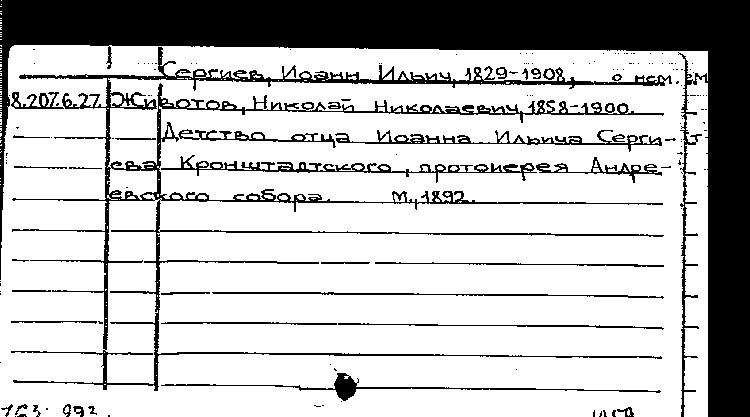 Сергиев, Иоанн Ильич, 1829-1908, о нем.
8.207.6.27. Животов, Николай Николаевич, 1858-1900.
Детство отца Иоанна Ильича Серги-
ева Кронштадтского, протоиерея Андре-
евского собора. М., 1892.